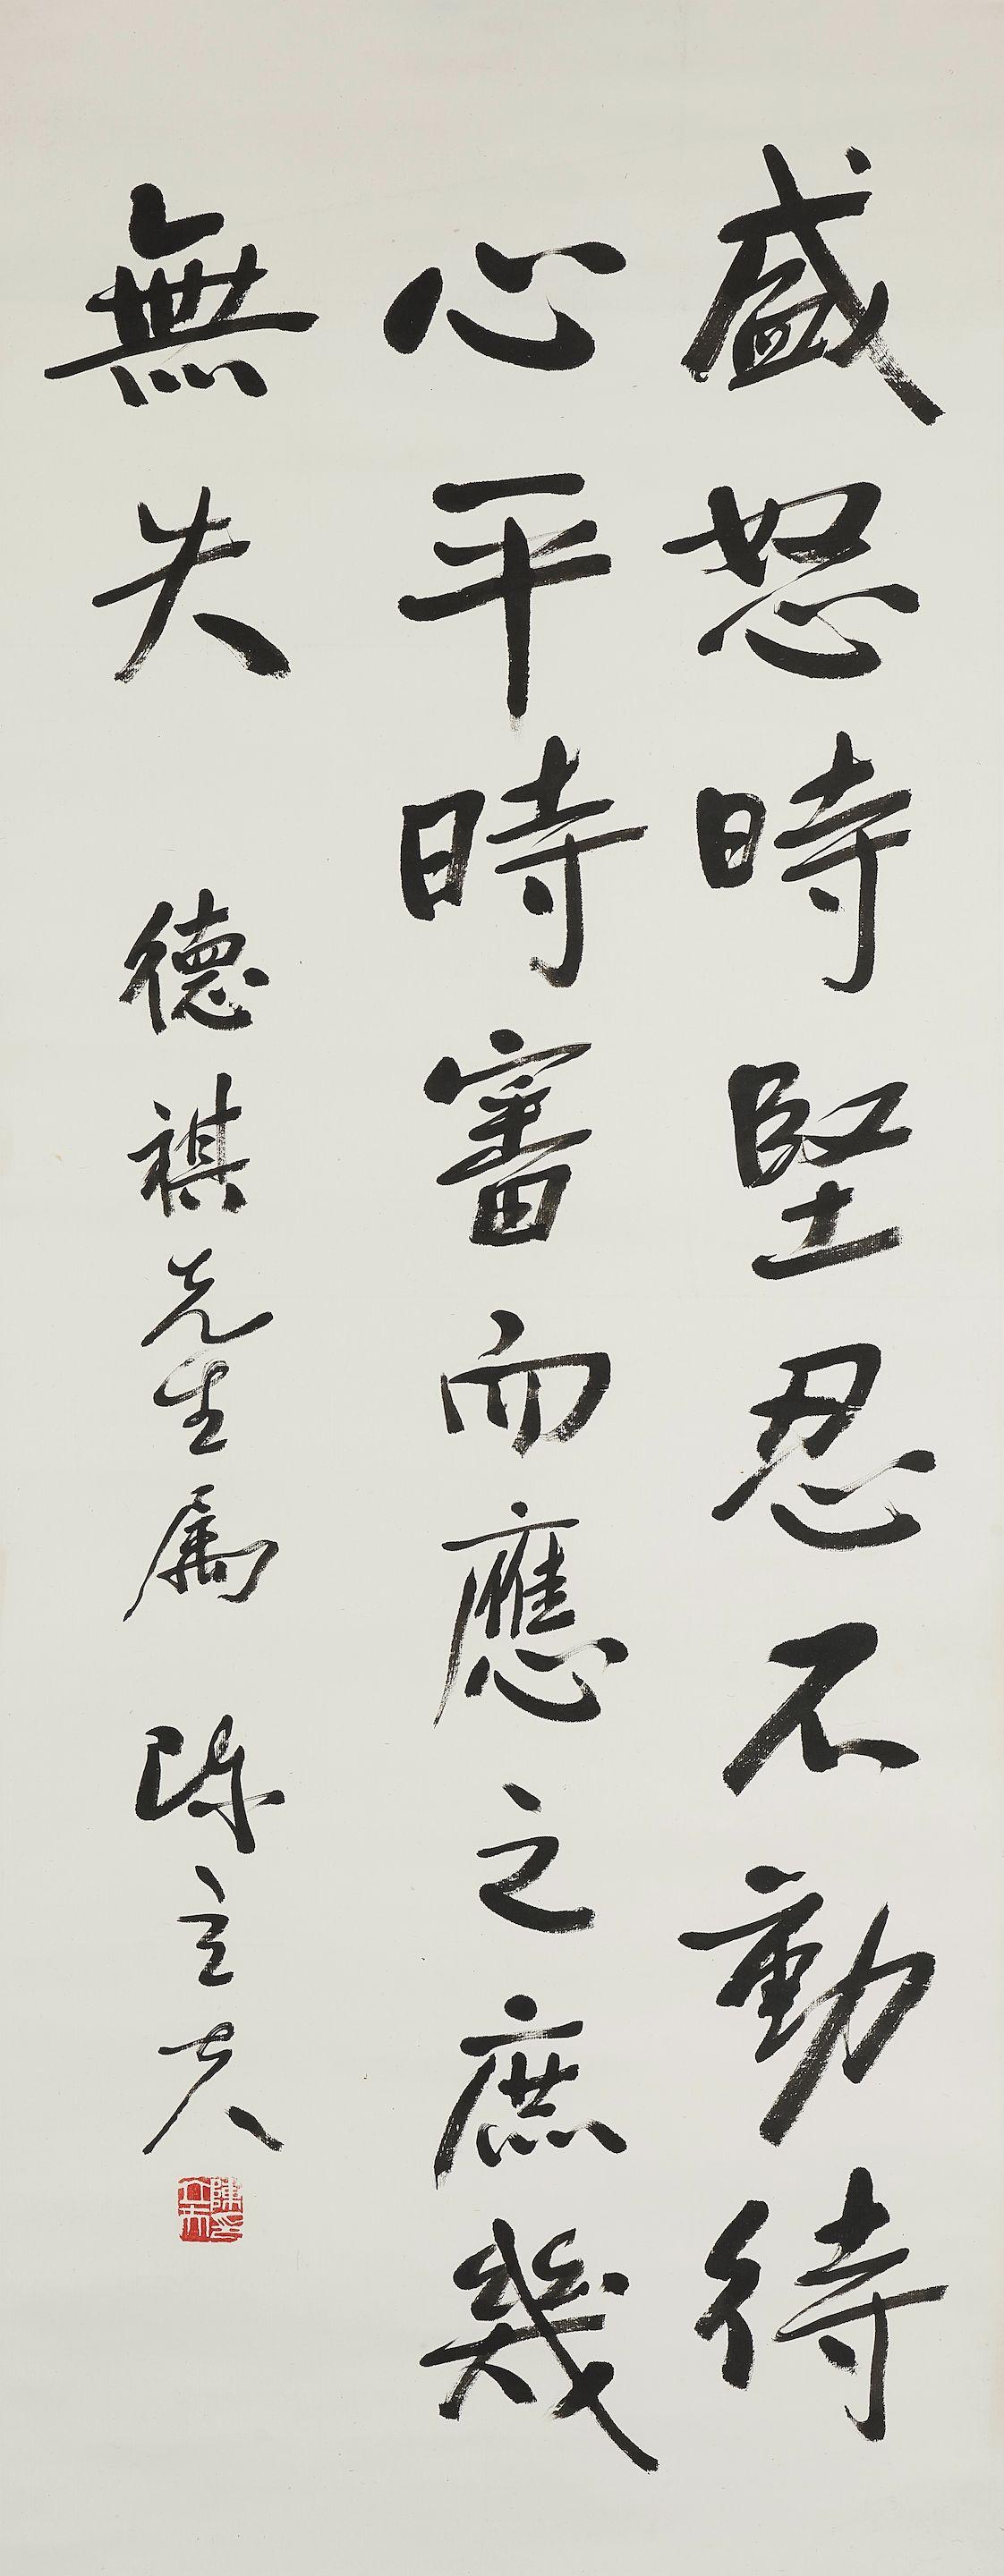 盛怒時堅忍不動待
心平時審而應之庶幾
無失 德祺先生属 陳立夫
陳立夫印